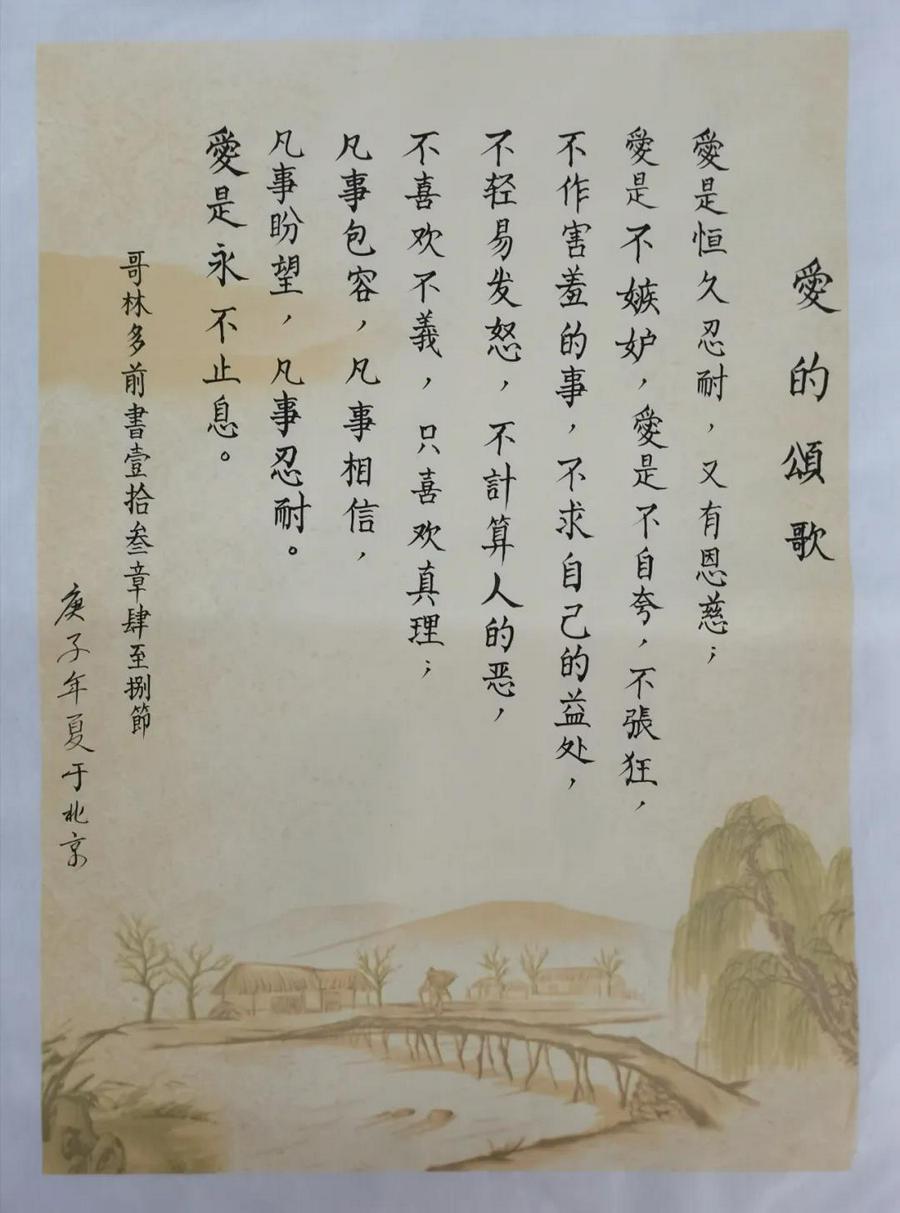 愛的頌歌
愛是恒久忍耐，又有恩慈；
愛是不嫉妒，愛是不自夸，不張狂，
不作害羞的事，不求自己的益处，
不轻易发怒，不計算人的恶，
不喜欢不義，只喜欢真理；
凡事包容，凡事相信，
凡事盼望，凡事忍耐。
愛是永不止息。
哥林多前書壹拾叁章肆至捌節
庚子年夏于北京